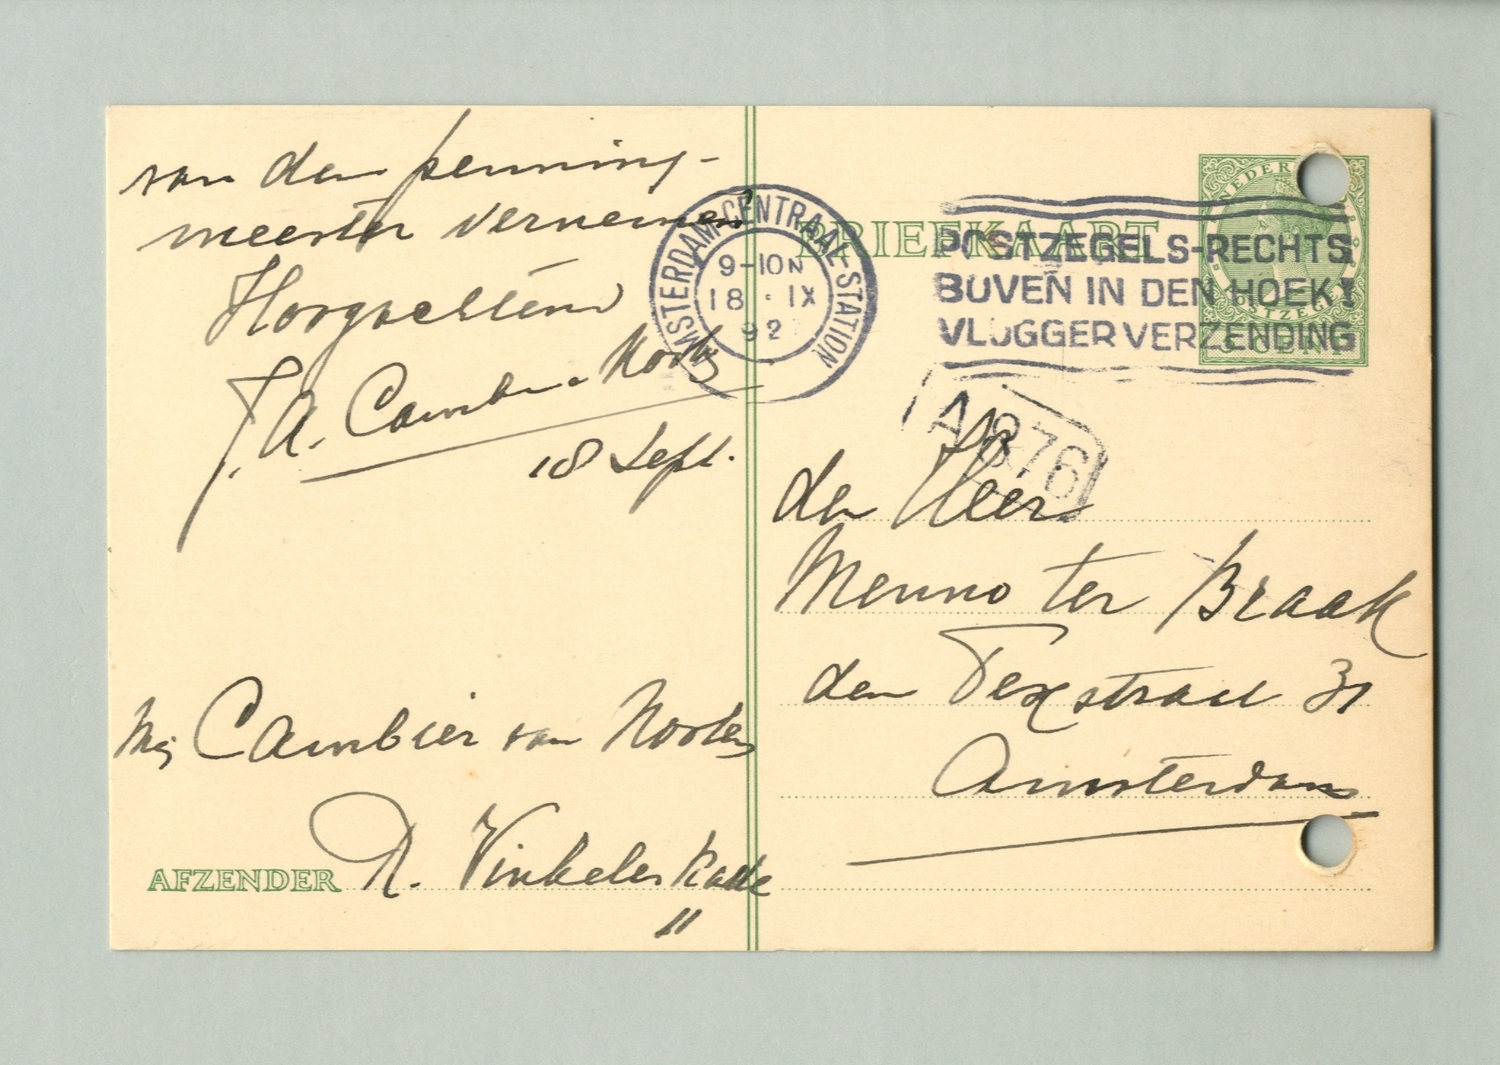 van den penning-
meester vernemen
Hoogachtend
J. A. Cambier Noote
18 Sept.
Mej Cambier van Nooten
AFZENDER R. Vinkeleskade
11
AMSTERDAM-CENTRAAL-STATION
9-10N
18 · IX
92
BRIEFKAART
POSTZEGELS-RECHTS
BOVEN IN DEN HOEK!
VLUGGER VERZENDING
NEDERL
POSTZEGEL
CENT
A 876
den Heer
Menno ter Braak
den Texstraat 31
Amsterdam